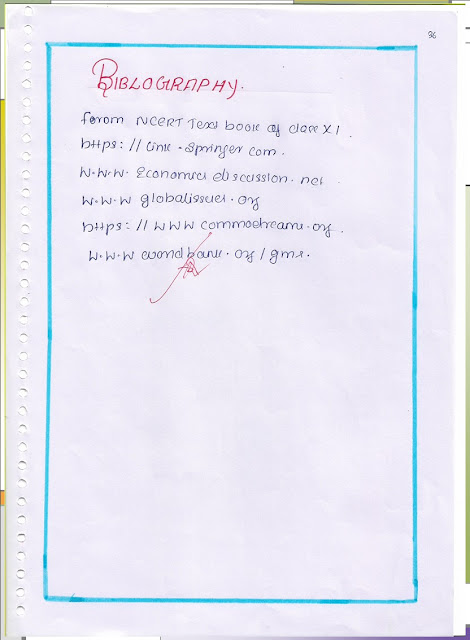 36
BIBLOGRAPHY.
forom NCERT Text book of class XI.
https: // link . springer com .
w.w.w Economics discussion . net
w.w.w globalissues . org
https: // www commodreams . org .
w.w.w world bank . org / gmr .